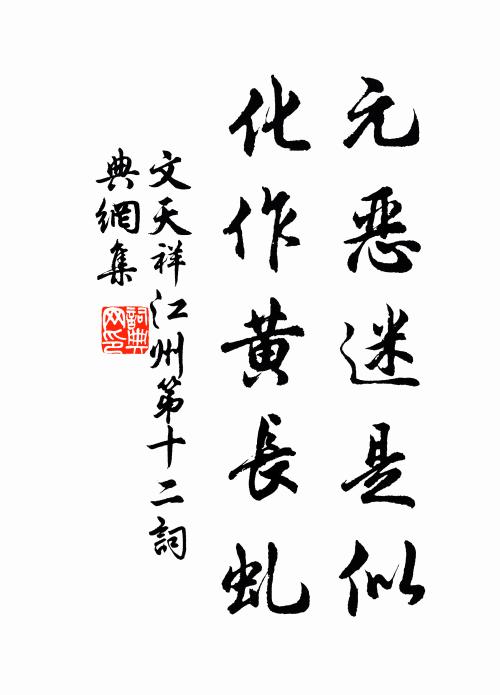 元惡迷是似
化作黃長虬
文天祥江州第十二詞
典網集
詞典
网印